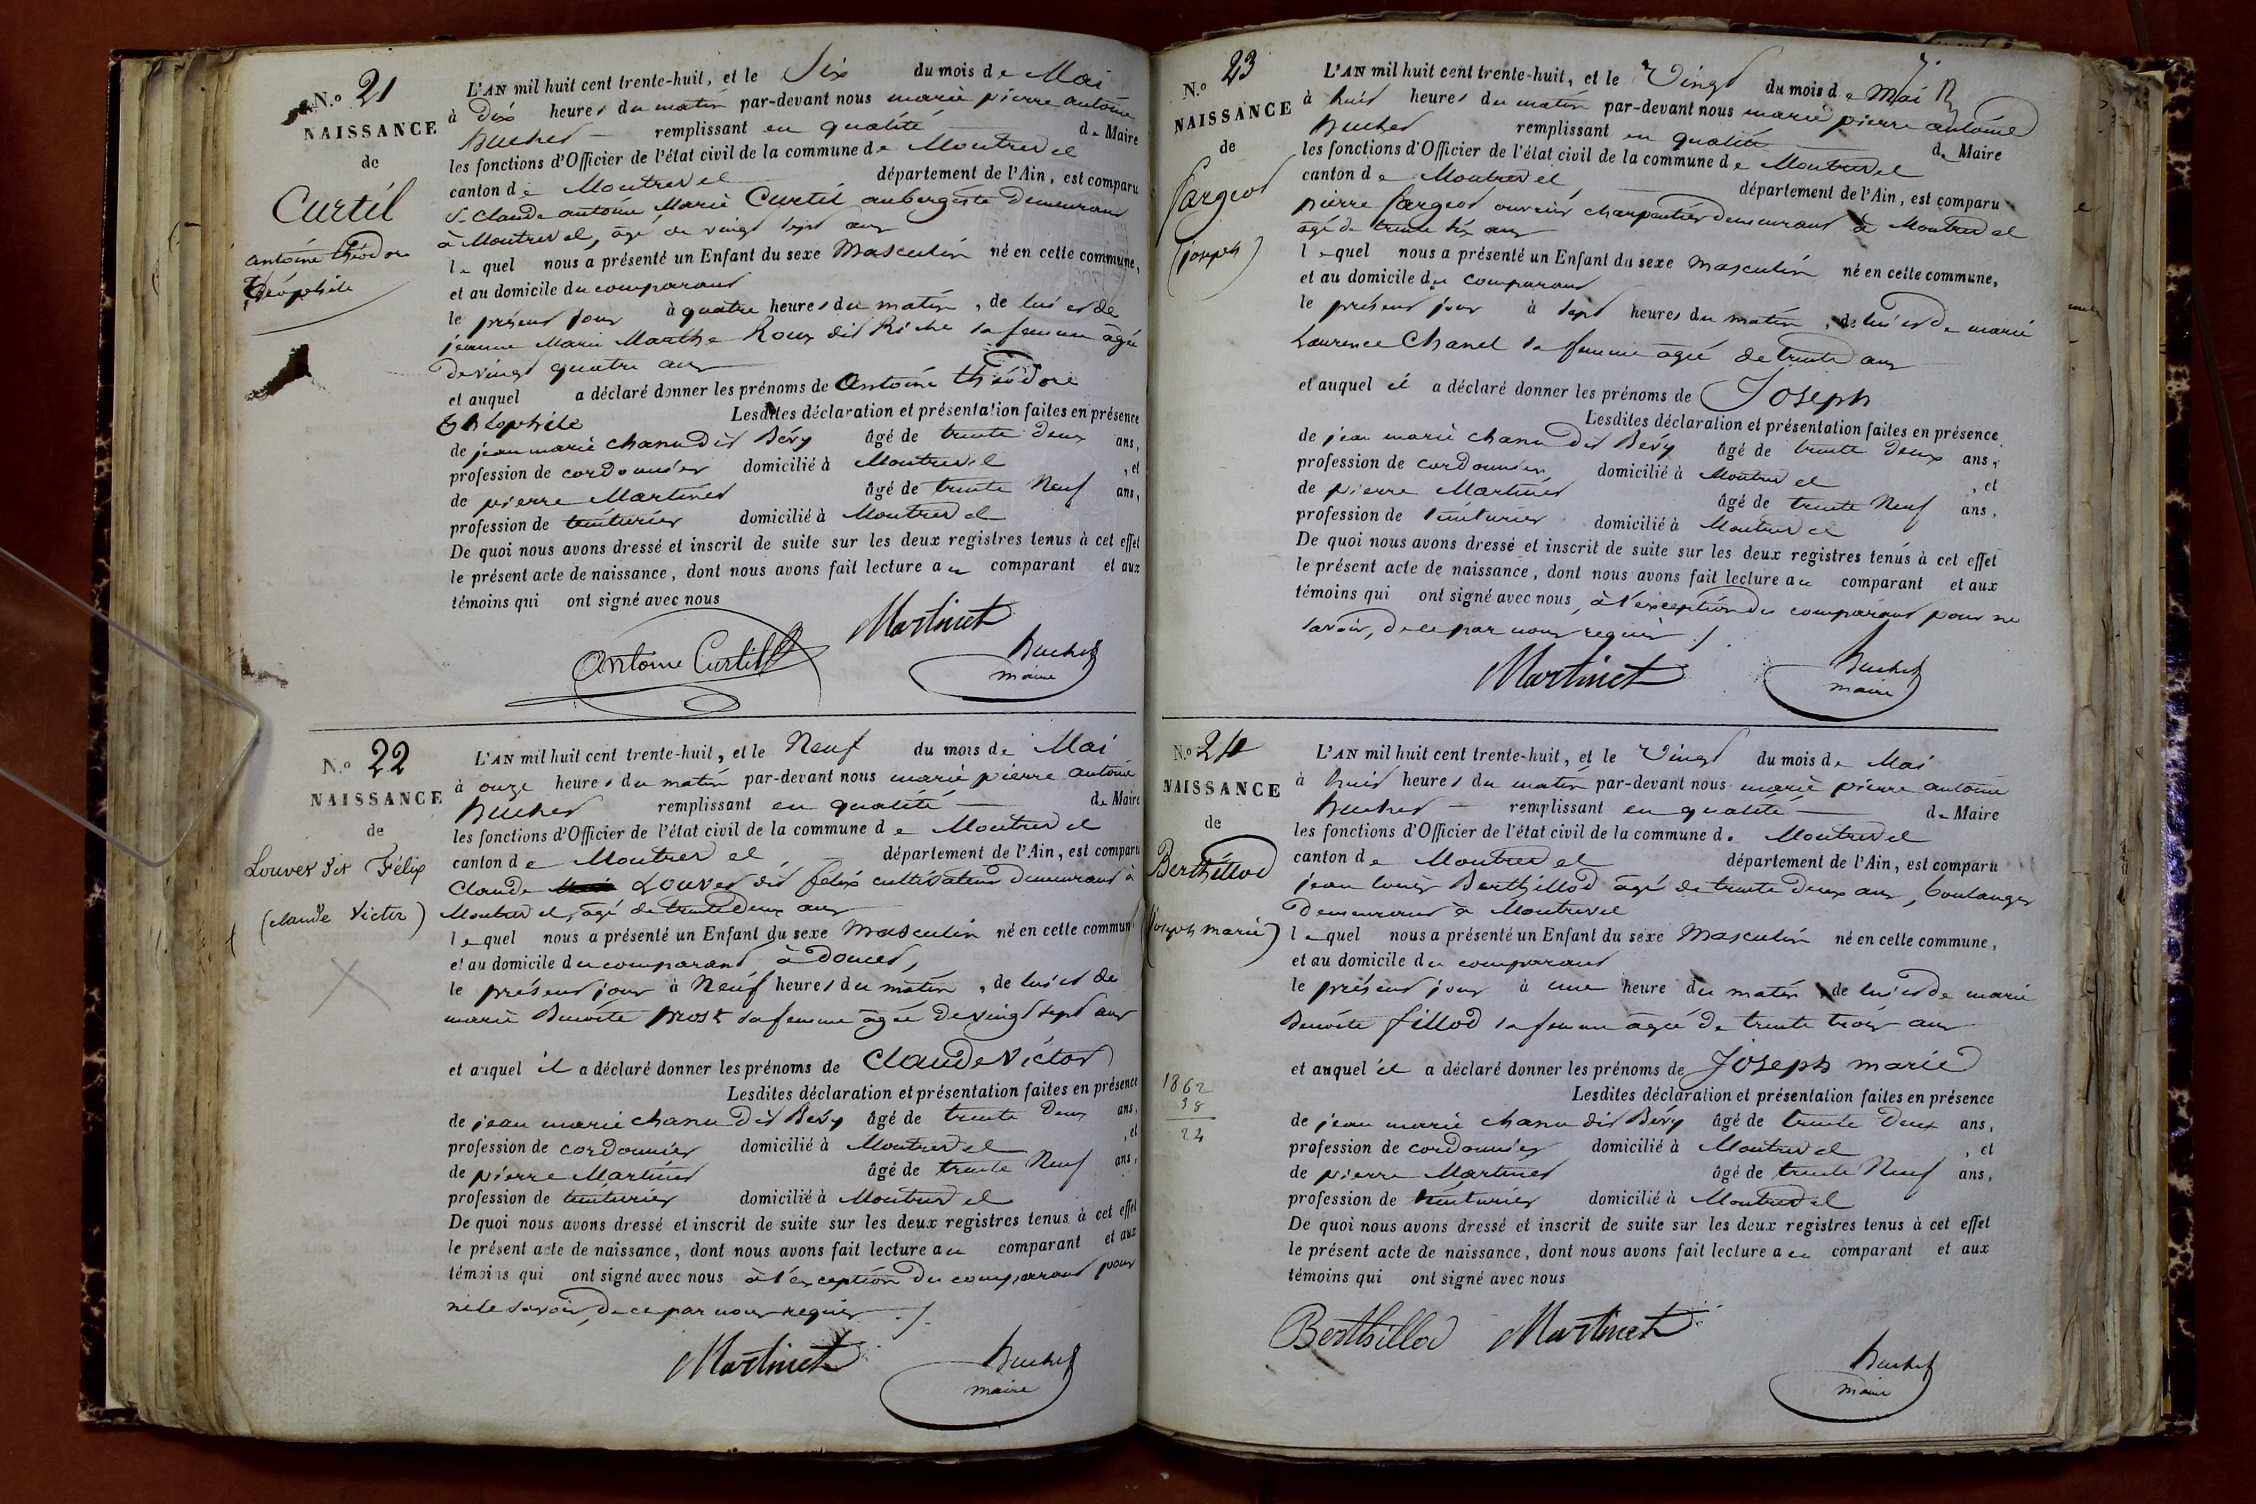 N.o 21
NAISSANCE
de
Curtil
antoine théodore
théophile
L'AN mil huit cent trente-huit, et le Six du mois de Mai
à Dix heures du matin par-devant nous marie pierre antoine
Buchet remplissant en qualité de Maire
les fonctions d'Officier de l'état civil de la commune de Montrevel
canton de Montrevel département de l'Ain, est comparu
S. Claude antoine Marie Curtil aubergiste demeurant
à Montrevel, âgé de vingt sept ans
lequel nous a présenté un Enfant du sexe Masculin né en cette commune,
et au domicile du comparant
le présent jour à quatre heures du matin, de lui et de
jeanne Marie Marthe Roux dit Riche sa femme âgée
de vingt quatre ans
et auquel a déclaré donner les prénoms de Antoine théodore
théophile Lesdites déclaration et présentation faites en présence
de jean marie chanu dit Bévy âgé de trente deux ans,
profession de cordonnier domicilié à Montrevel, et
de pierre Martinet âgé de trente Neuf ans,
profession de teinturier domicilié à Montrevel
De quoi nous avons dressé et inscrit de suite sur les deux registres tenus à cet effet
le présent acte de naissance, dont nous avons fait lecture au comparant et aux
témoins qui ont signé avec nous
Martinet
Antoine Curtil
Buchet
maire
N.o 22
NAISSANCE
de
Louvet dit Félix
(claude Victor)
L'AN mil huit cent trente-huit, et le Neuf du mois de Mai
à onze heures du matin par-devant nous marie pierre antoine
Buchet remplissant en qualité de Maire
les fonctions d'Officier de l'état civil de la commune de Montrevel
canton de Montrevel département de l'Ain, est comparu
Claude Louvet dit félix cultivateur demeurant à
Montrevel, âgé de trente deux ans
lequel nous a présenté un Enfant du sexe Masculin né en cette commune
et au domicile du comparant à Doucet,
le présent jour à Neuf heures du matin, de lui et de
marie Benoite Prost sa femme âgée de vingt sept ans
et auquel il a déclaré donner les prénoms de Claude Victor
Lesdites déclaration et présentation faites en présence
de jean marie chanu dit Bévy âgé de trente deux ans,
profession de cordonnier domicilié à Montrevel, et
de pierre Martinet âgé de trente Neuf ans,
profession de teinturier domicilié à Montrevel
De quoi nous avons dressé et inscrit de suite sur les deux registres tenus à cet effet
le présent acte de naissance, dont nous avons fait lecture au comparant et aux
témoins qui ont signé avec nous à l'exception du comparant pour
ne le savoir, de ce par nous requis ./.
Martinet
Buchet
maire
N.o 23
NAISSANCE
de
Pargeot
(joseph)
L'AN mil huit cent trente-huit, et le Vingt du mois de Mai
à huit heures du matin par-devant nous marie pierre antoine
Buchet remplissant en qualité de Maire
les fonctions d'Officier de l'état civil de la commune de Montrevel
canton de Montrevel département de l'Ain, est comparu
pierre Pargeot ouvrier charpentier demeurant à Montrevel
âgé de trente six ans
lequel nous a présenté un Enfant du sexe masculin né en cette commune,
et au domicile du comparant
le présent jour à sept heures du matin, de lui et de marie
Laurence Chanel sa femme âgée de trente ans
et auquel il a déclaré donner les prénoms de Joseph
Lesdites déclaration et présentation faites en présence
de jean marie chanu dit Bévy âgé de trente deux ans,
profession de cordonnier domicilié à Montrevel, et
de pierre Martinet âgé de trente Neuf ans,
profession de teinturier domicilié à Montrevel
De quoi nous avons dressé et inscrit de suite sur les deux registres tenus à cet effet
le présent acte de naissance, dont nous avons fait lecture au comparant et aux
témoins qui ont signé avec nous, à l'exception du comparant pour ne
savoir, de ce par nous requis ./.
Martinet
Buchet
maire
N.o 24
NAISSANCE
de
Berthillod
(joseph marie)
1862
38
24
L'AN mil huit cent trente-huit, et le Vingt du mois de Mai
à huit heures du matin par-devant nous marie pierre antoine
Buchet remplissant en qualité de Maire
les fonctions d'Officier de l'état civil de la commune de Montrevel
canton de Montrevel département de l'Ain, est comparu
jean louis Berthillod âgé de trente deux ans, boulanger
demeurant à Montrevel
lequel nous a présenté un Enfant du sexe Masculin né en cette commune,
et au domicile du comparant
le présent jour à une heure du matin, de lui et de marie
Benoite fillod sa femme âgée de trente trois ans
et auquel il a déclaré donner les prénoms de Joseph marie
Lesdites déclaration et présentation faites en présence
de jean marie chanu dit Bévy âgé de trente deux ans,
profession de cordonnier domicilié à Montrevel, et
de pierre Martinet âgé de trente Neuf ans,
profession de teinturier domicilié à Montrevel
De quoi nous avons dressé et inscrit de suite sur les deux registres tenus à cet effet
le présent acte de naissance, dont nous avons fait lecture au comparant et aux
témoins qui ont signé avec nous
Berthillod Martinet
Buchet
maire